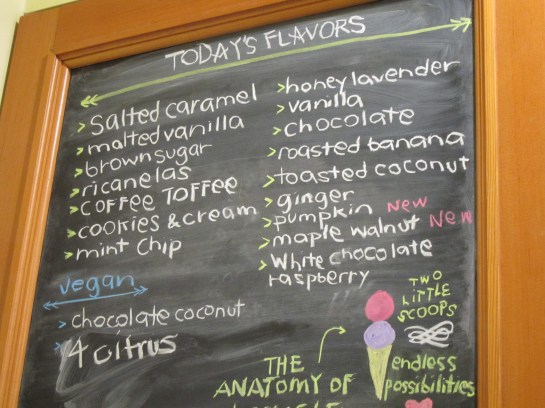 TODAY'S FLAVORS
> Salted caramel
> malted vanilla
> brown sugar
> ricanelas
> COFFEE TOFFEE
> cookies & cream
> mint chip
> honey lavender
> vanilla
> chocolate
> roasted banana
> toasted coconut
> ginger
> pumpkin New
> maple walnut New
> White chocolate
raspberry
vegan
> chocolate coconut
> 4 citrus
TWO
LITTLE
SCOOPS
endless
possibilities
THE
ANATOMY OF